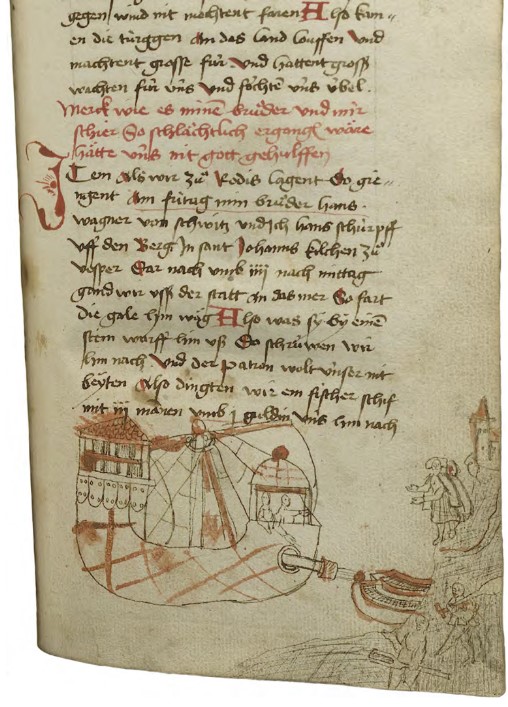 gegen wind nit mochtent faren Also kam=
en die türggen An das land louffen Vnd
machtent grosse für Vnd hattent gross
wachten für vns Vnd fochten vns übel.
Merck wie es minem bruder vnd mir
schier So schlächtlich ergangen wäre
hätte vns nit gott gehulffen
Item Als wir zu Rodis lagent Do gie=
ngent Am fritag min bruder hans
wagner von schwitz vnd Ich hans schürpff
vff den Berg In sant Johanns kilchen zu
vesper Dar nach vmb iiij nach mittag
gand wir vss der statt an das mer So fart
die gale hin wäg Also was sy by einem
stein warff hin vss Do schruwen wir
hin nach Vnd der patron wolt vnser nit
beyten Also dingten wir ein fischer schif
mit iij manen vmb j guldin vns hin nach